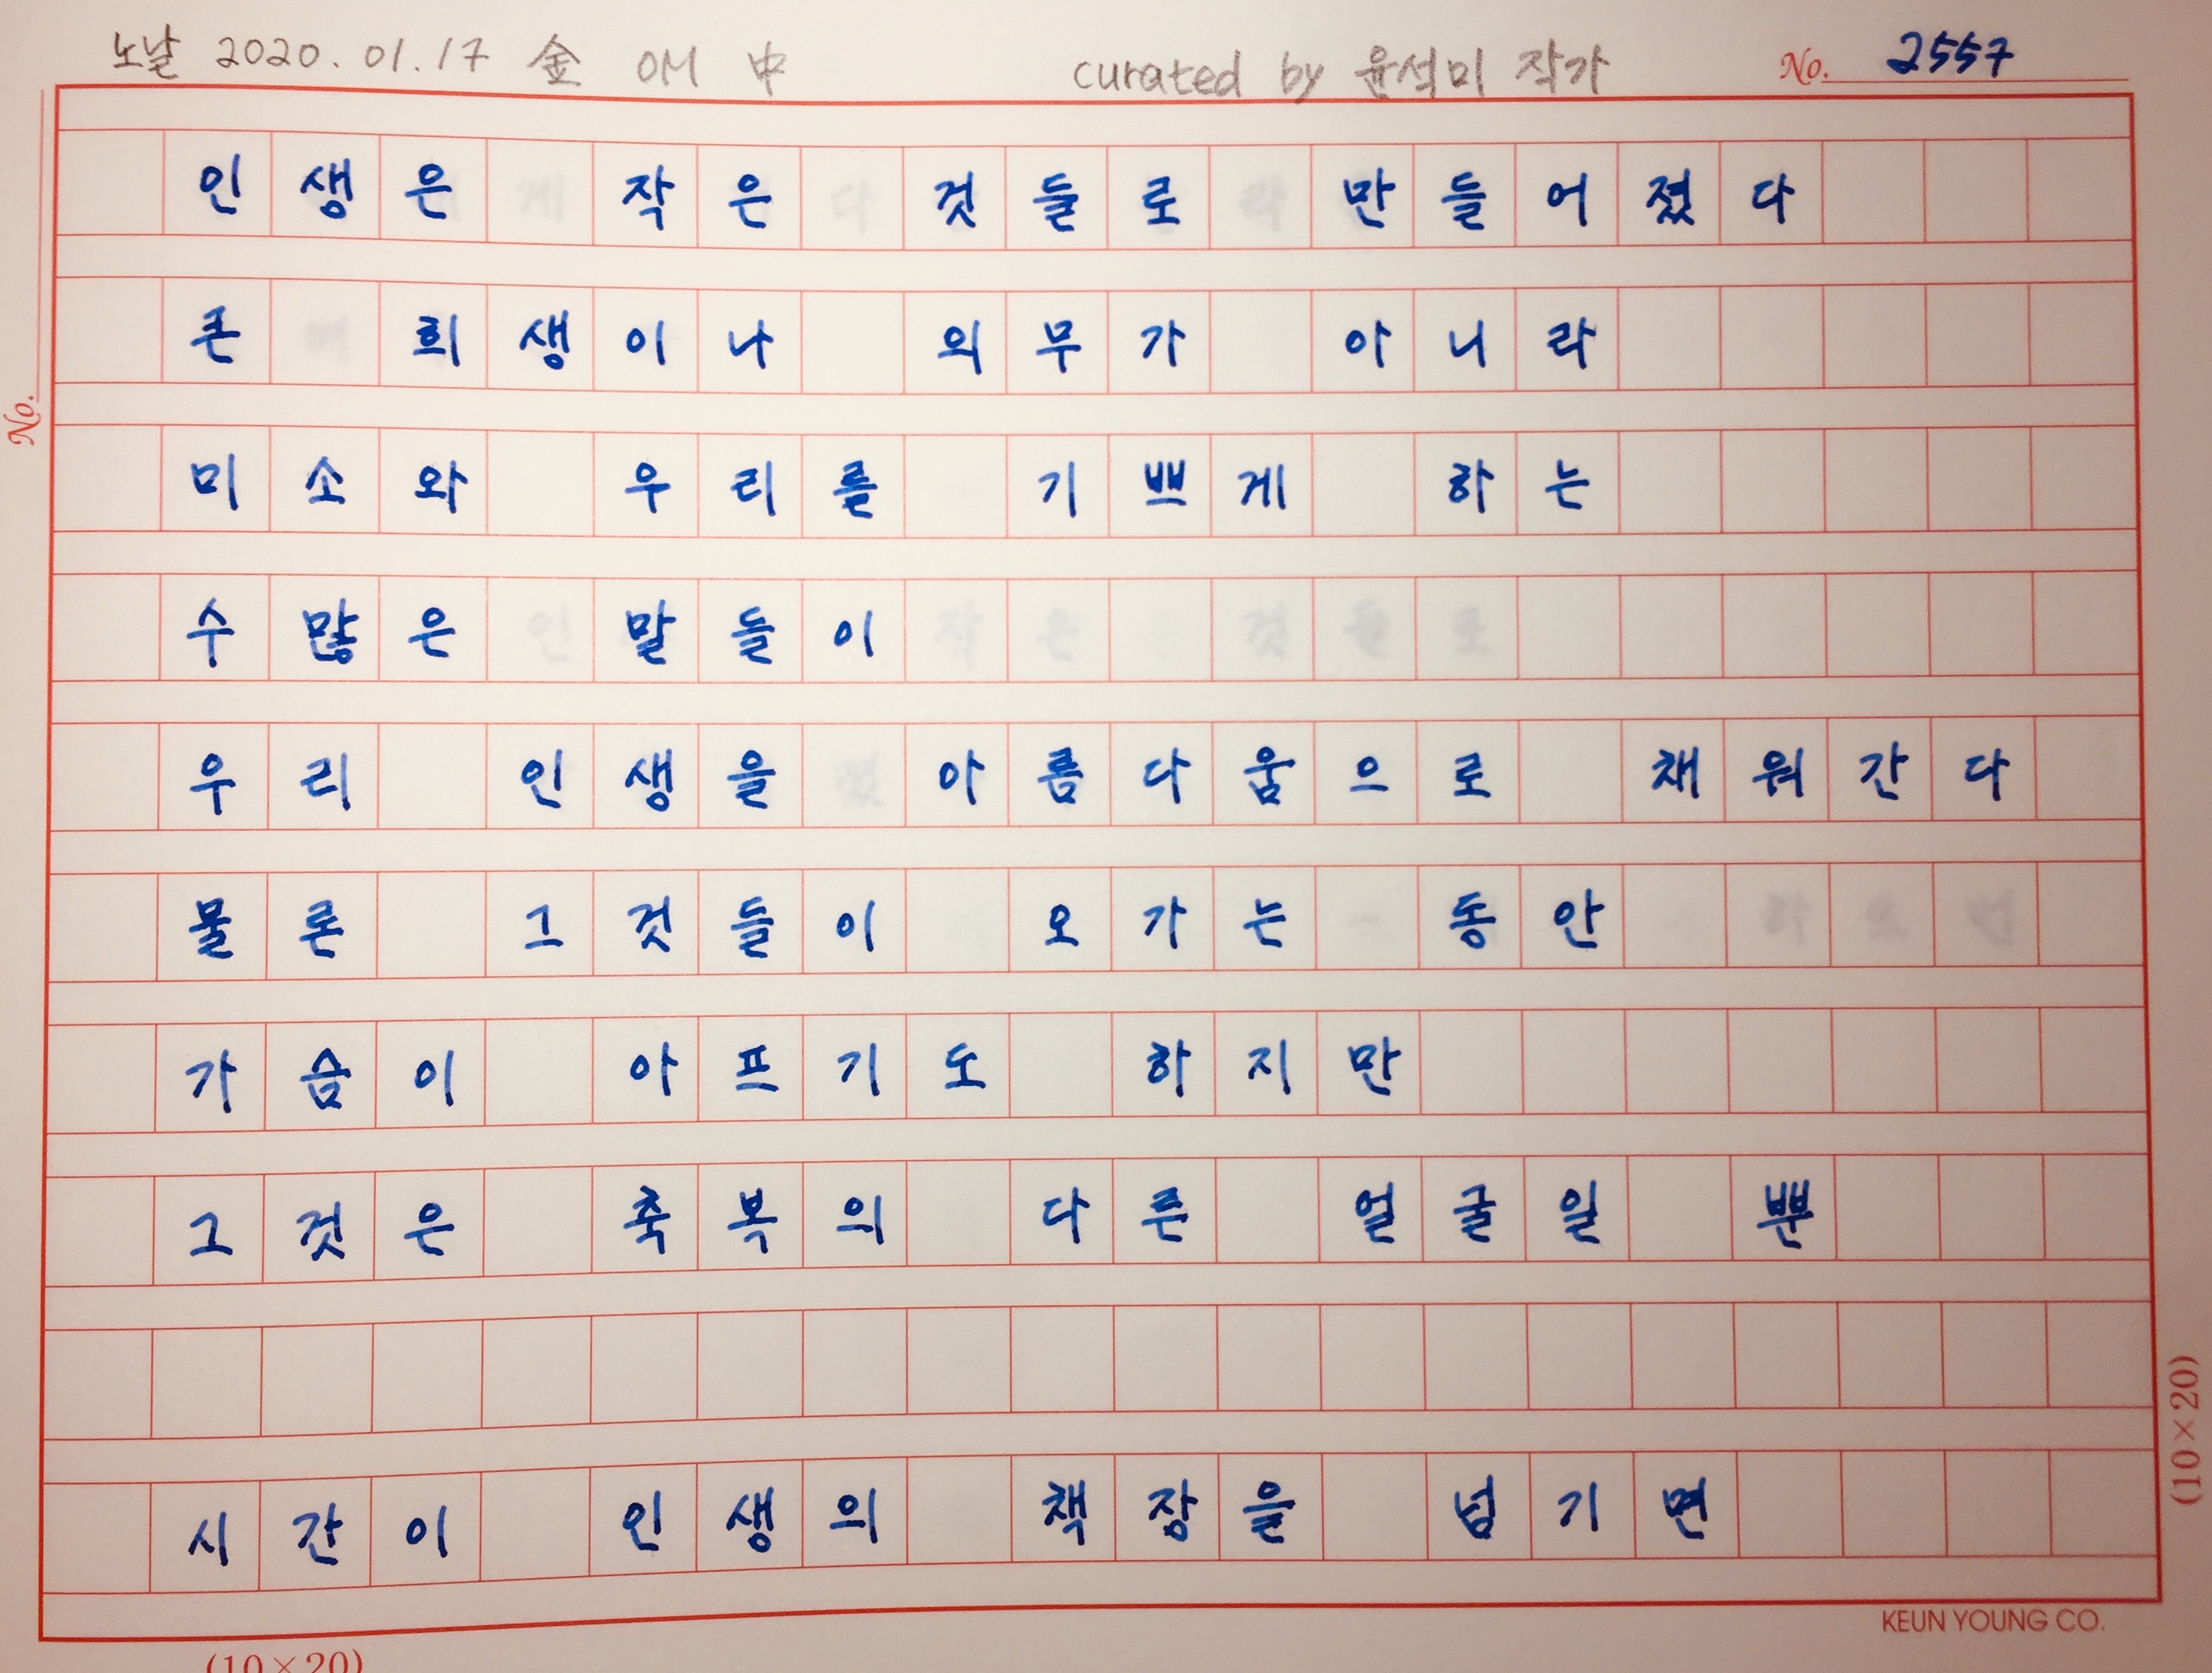 노날 2020.01.17 金 OM 中 curated by 윤석미 작가 No. 2557
No.
인생은 작은 것들로 만들어졌다
큰 희생이나 의무가 아니라
미소와 우리를 기쁘게 하는
수많은 말들이
우리 인생을 아름다움으로 채워간다
물론 그것들이 오가는 동안
가슴이 아프기도 하지만
그것은 축복의 다른 얼굴일 뿐
시간이 인생의 책장을 넘기면
(10×20)
KEUN YOUNG CO.
(10×20)